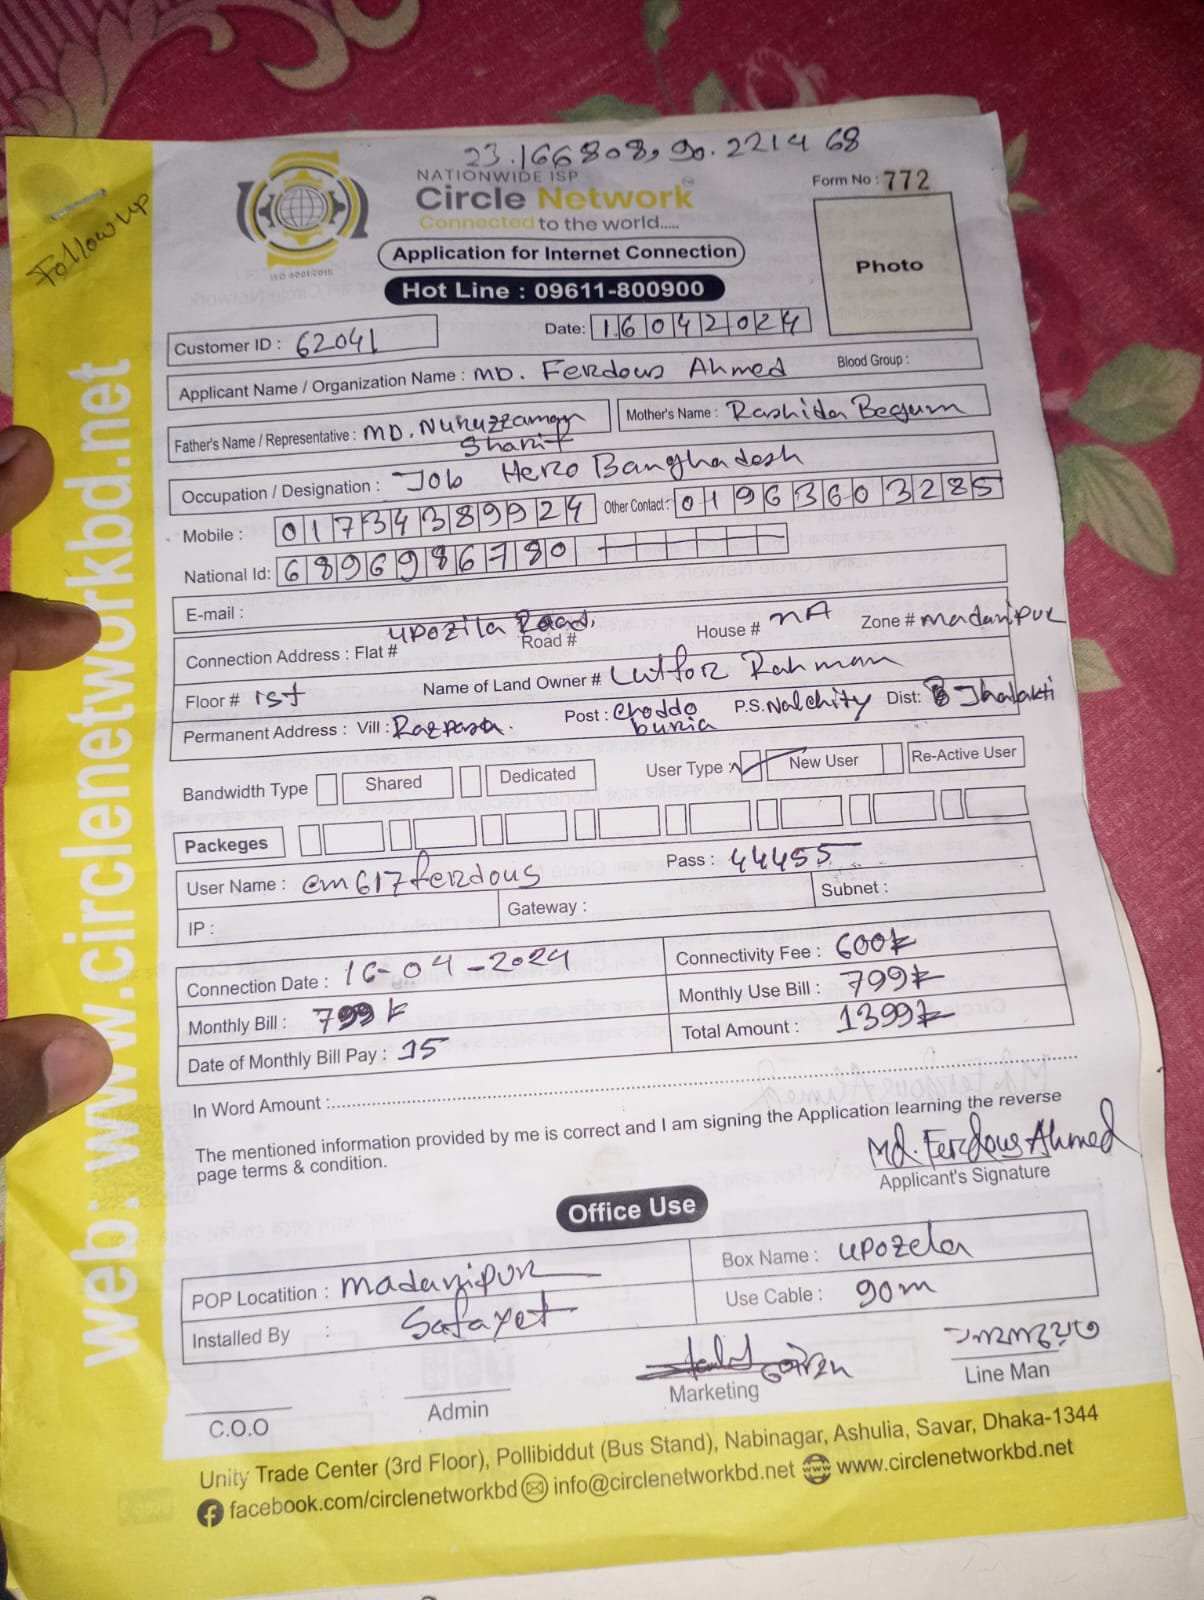 23.166808, 90.221468
Follow up
NATIONWIDE ISP
Circle Network
Connected to the world.....
ISO 9001:2015
Form No : 772
Photo
Application for Internet Connection
Hot Line : 09611-800900
Customer ID : 62041
Date: 16042024
Applicant Name / Organization Name : MD. Ferdous Ahmed Blood Group :
Father's Name / Representative : MD. Nuruzzaman Sharif Mother's Name : Rashida Begum
Occupation / Designation : Job Hero Bangladesh
Mobile : 01734389924 Other Contact : 01963603285
National Id: 6896986780
E-mail :
Connection Address : Flat # upozila Road, Road # House # NA Zone # madaripur
Floor # 1st Name of Land Owner # Lutfor Rahman
Permanent Address : Vill : Post : Choddo buria P.S. Nalchity Dist: Jhalakti
Bandwidth Type Shared Dedicated User Type : New User Re-Active User
Packeges
User Name : cm617ferdous Pass : 44455
IP : Gateway : Subnet :
Connection Date : 16-04-2024 Connectivity Fee : 600
Monthly Bill : 799 Monthly Use Bill : 799
Date of Monthly Bill Pay : 15 Total Amount : 1399
In Word Amount :
The mentioned information provided by me is correct and I am signing the Application learning the reverse
page terms & condition.
Md. Ferdous Ahmed
Applicant's Signature
Office Use
POP Locatition : Madaripur Box Name : upozela
Installed By : Safayet Use Cable : 90m
C.O.O Admin Marketing Line Man
Unity Trade Center (3rd Floor), Pollibiddut (Bus Stand), Nabinagar, Ashulia, Savar, Dhaka-1344
facebook.com/circlenetworkbd info@circlenetworkbd.net www.circlenetworkbd.net
web: www.circlenetworkbd.net